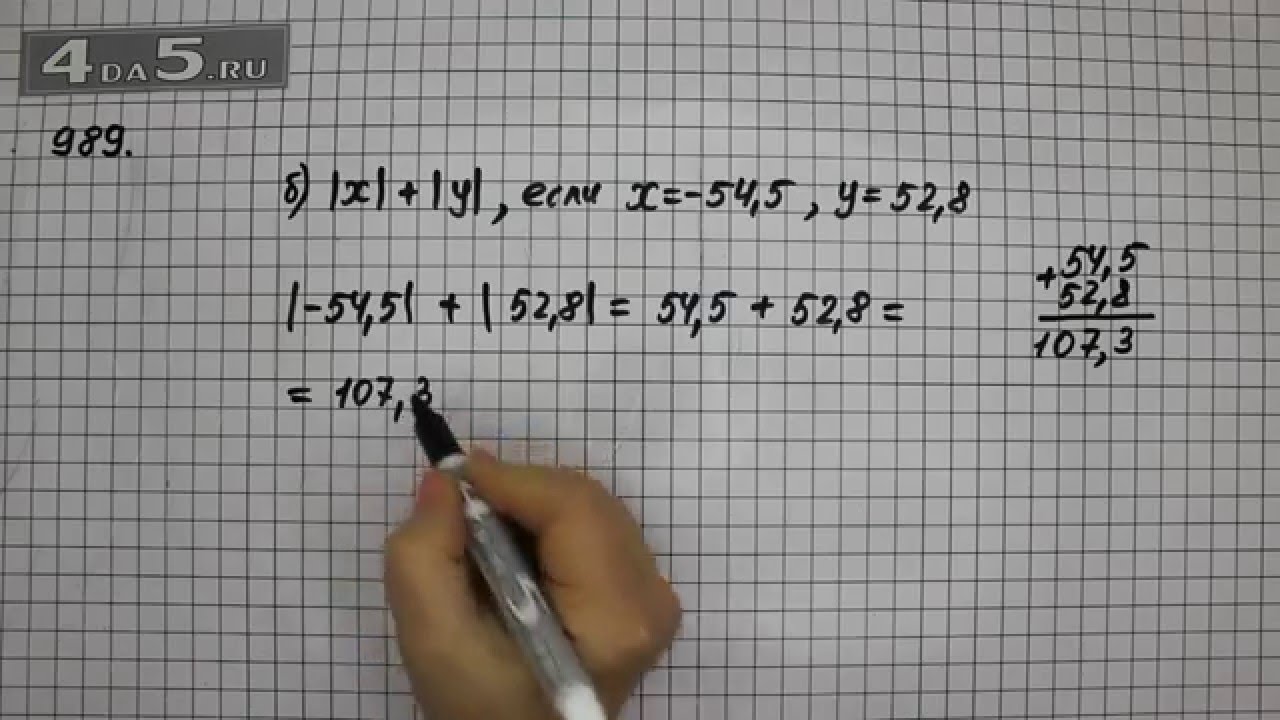 4DA5.RU
989.
б) |x| + |y|, если x=-54,5, y=52,8
|-54,5| + |52,8| = 54,5 + 52,8 =
= 107,3
+54,5
52,8
107,3